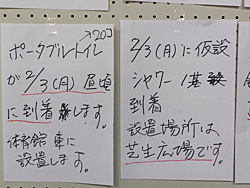 →20コ
ポータブルトイレ
が2/3(月)昼頃
に到着します。
体育館 裏に
設置します。
2/3(月)に仮設
シャワー1基
到着
設置場所は
芝生広場です。